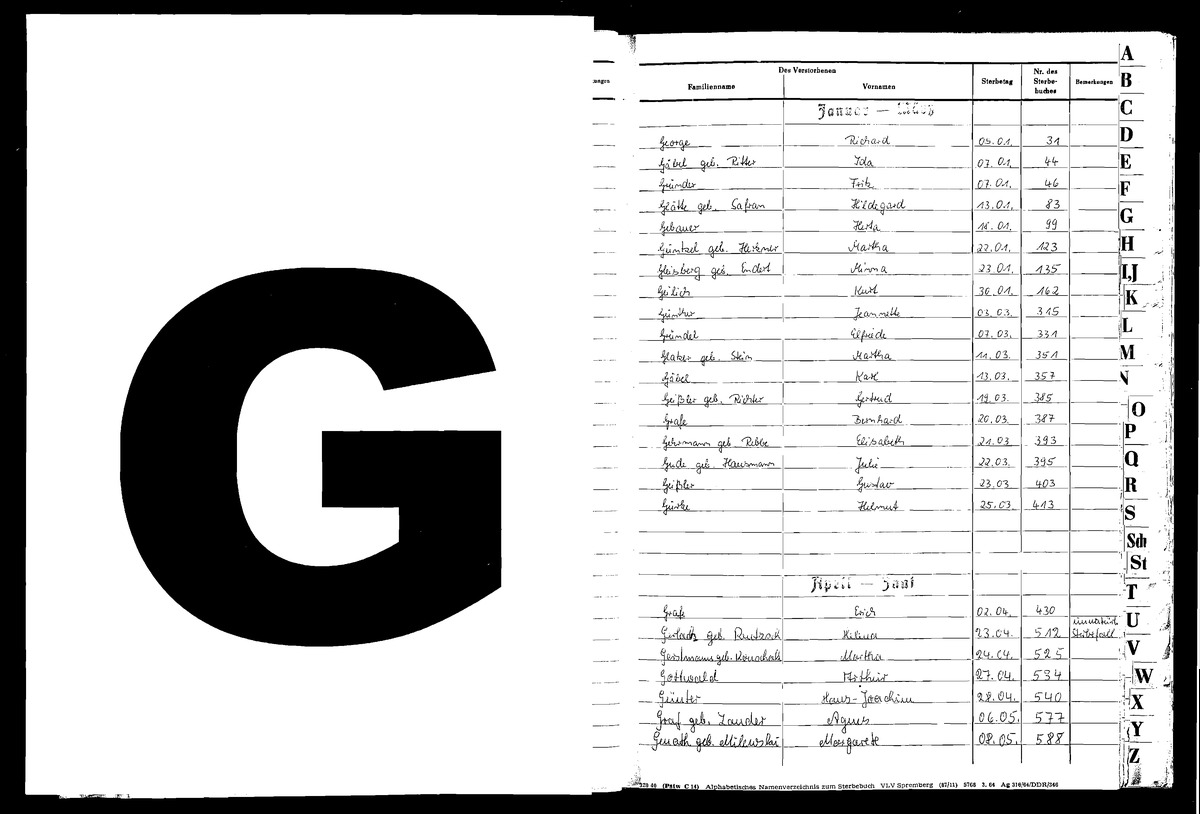 G
Des Verstorbenen
Familienname Vornamen Sterbetag Nr. des Sterbe-buches Bemerkungen
Januar — März
George Richard 05.01. 31
Gäbel geb. Ritter Ida 03.01. 44
Gründer Fritz 07.01. 46
Glätte geb. Safran Hildegard 13.01. 83
Gebauer Herta 16.01. 99
Güntzel geb. Martha 22.01. 123
Gleisberg geb. Endert Minna 23.01. 135
Kurt 30.01. 162
Günther Jeannette 03.03. 315
Gründel Elfriede 07.03. 331
Glaber geb. Stein Martha 11.03. 351
Gäbel Karl 13.03. 357
Geißler geb. Richter Gertrud 19.03. 385
Grafe Bernhard 20.03. 387
Gehrmann geb. Ribbe Elisabeth 21.03 393
Gude geb. Hausmann Julie 22.03. 395
Geißler Gustav 23.03 403
Helmut 25.03 413
April — Juni
Grafe Erich 02.04. 430
Gerlach geb. Helena 23.04. 512 Sterbefall
Gerstmann geb. Martha 24.04. 525
Gottwald Arthur 27.04. 534
Günter Hans-Joachim 28.04. 540
Graf geb. Zander Agnes 06.05. 577
Genath geb. Milewski Margarete 08.05. 588
(Pstw C 14) Alphabetisches Namenverzeichnis zum Sterbebuch VLV Spremberg (87/11) 5765 3. 64 Ag 310/64/DDR/346
A
B
C
D
E
F
G
H
I,J
K
L
M
N
O
P
Q
R
S
Sch
St
T
U
V
W
X
Y
Z